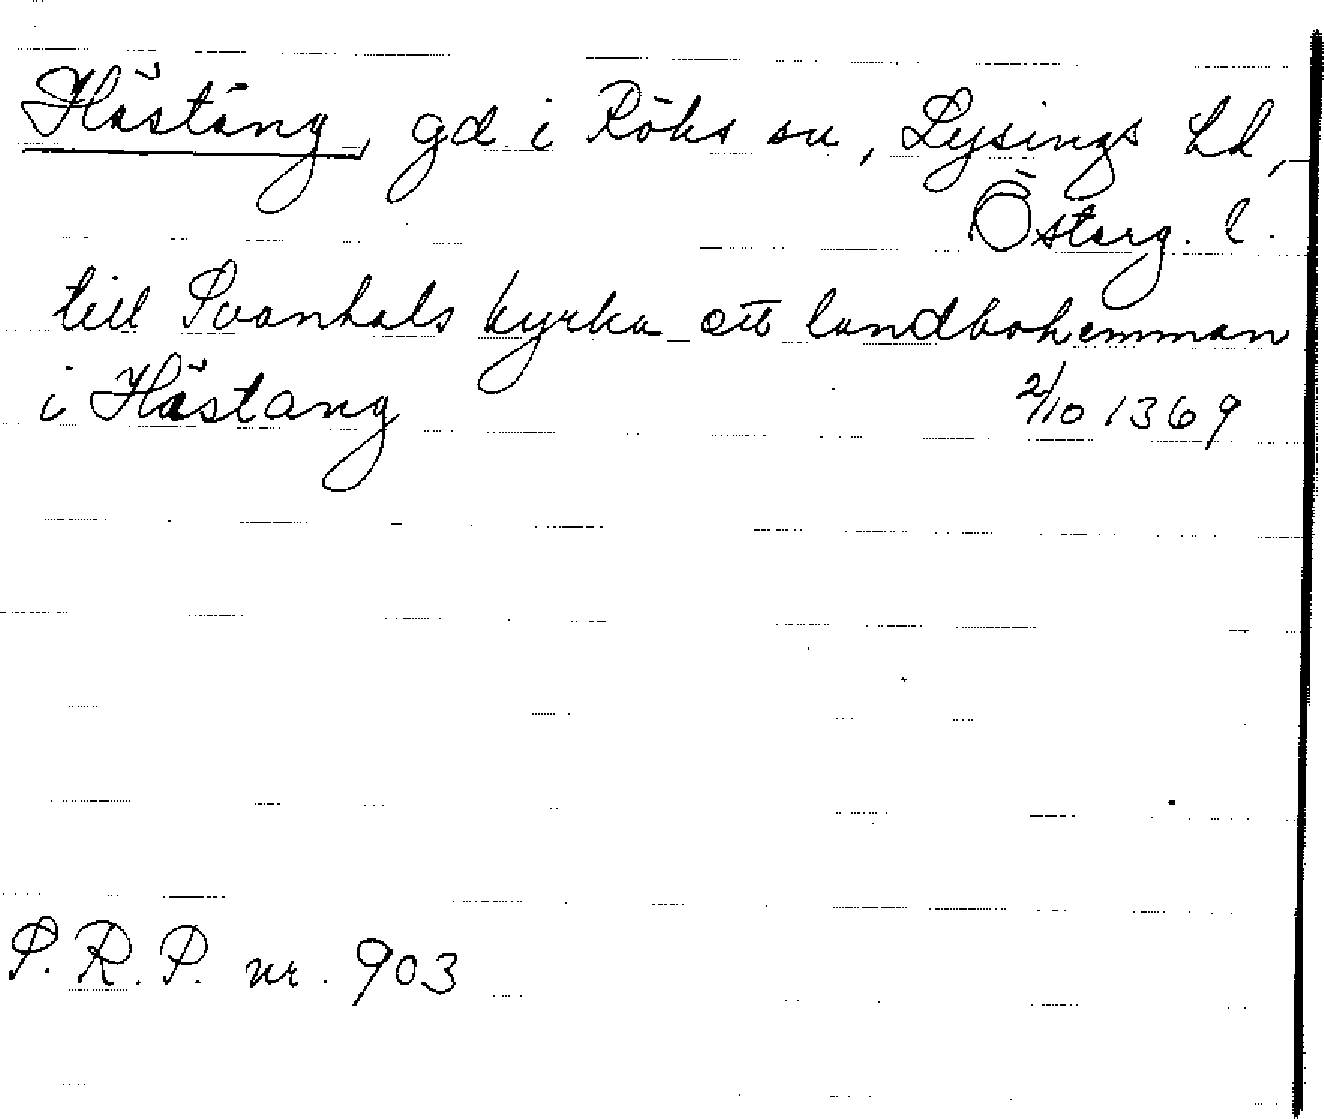 Hästäng, gd i Röks sn, Lysings hd,
Österg. l.
till Svanhals kyrka ett landbohemman
i Hästang 2/10 1369
S.R.P. nr. 903